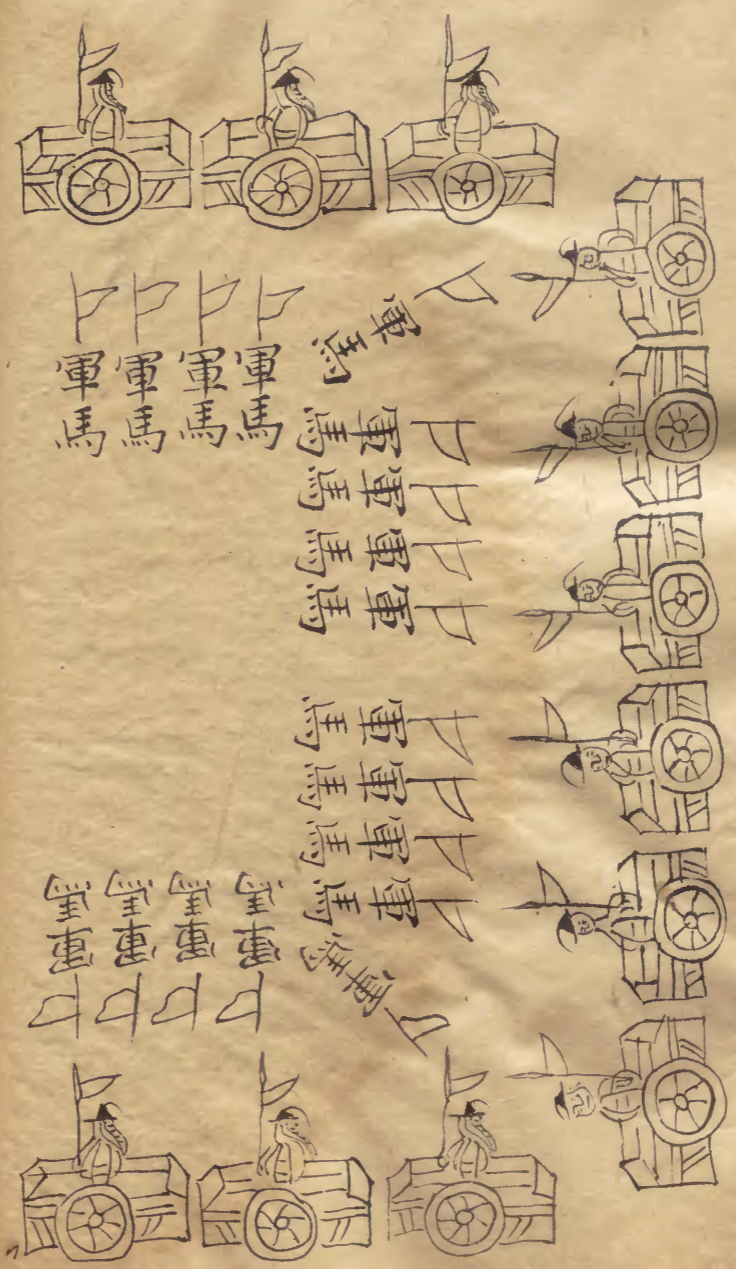 軍馬
軍馬
軍馬
軍馬
軍馬
軍馬
軍馬
軍馬
軍馬
軍馬
軍馬
軍馬
軍馬
軍馬
軍馬
軍馬
軍馬
軍馬